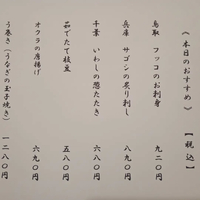 《本日のおすすめ》 【税込】
鳥取 フッコのお刺身 九二〇円
兵庫 サゴシの炙り刺し 八九〇円
千葉 いわしの酢たたき 六八〇円
茹でたて枝豆 五八〇円
オクラの唐揚げ 六九〇円
う巻き(うなぎの玉子焼き) 一二八〇円